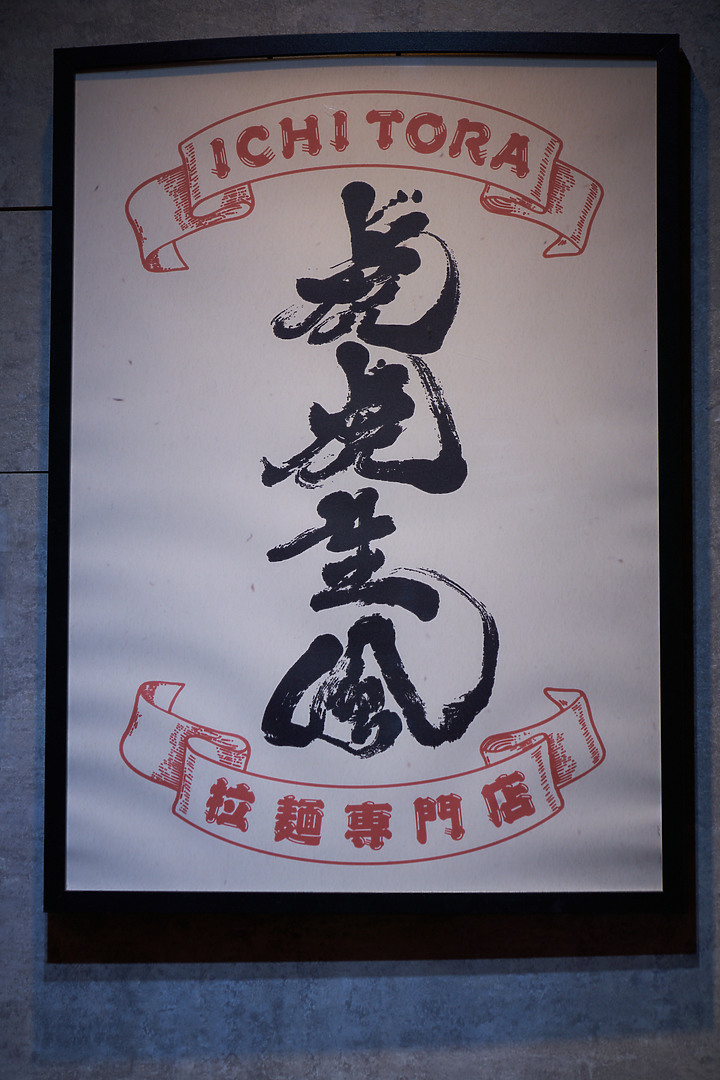 ICHI TORA
虎虎生風
拉麺専門店